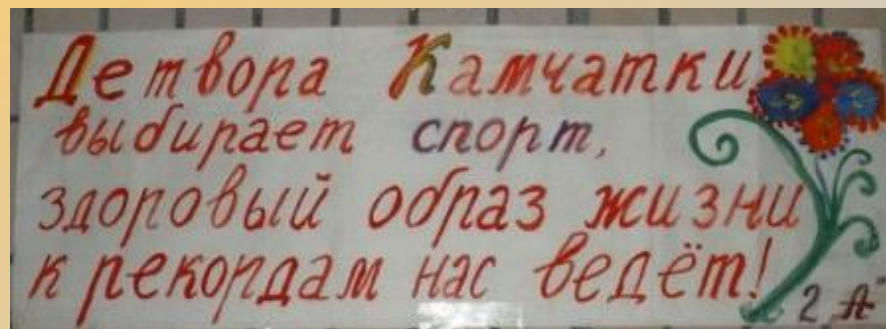 Детвора Камчатки
выбирает спорт,
здоровый образ жизни
к рекордам нас ведёт!
2 "А"